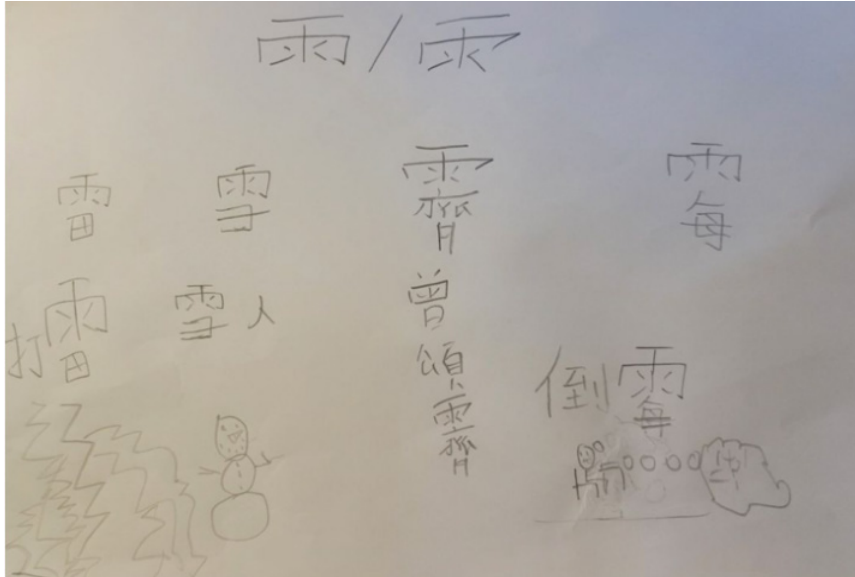 雨/雨
雷 雪 霽 霉
打雷 雪人 曾頌霽 倒霉